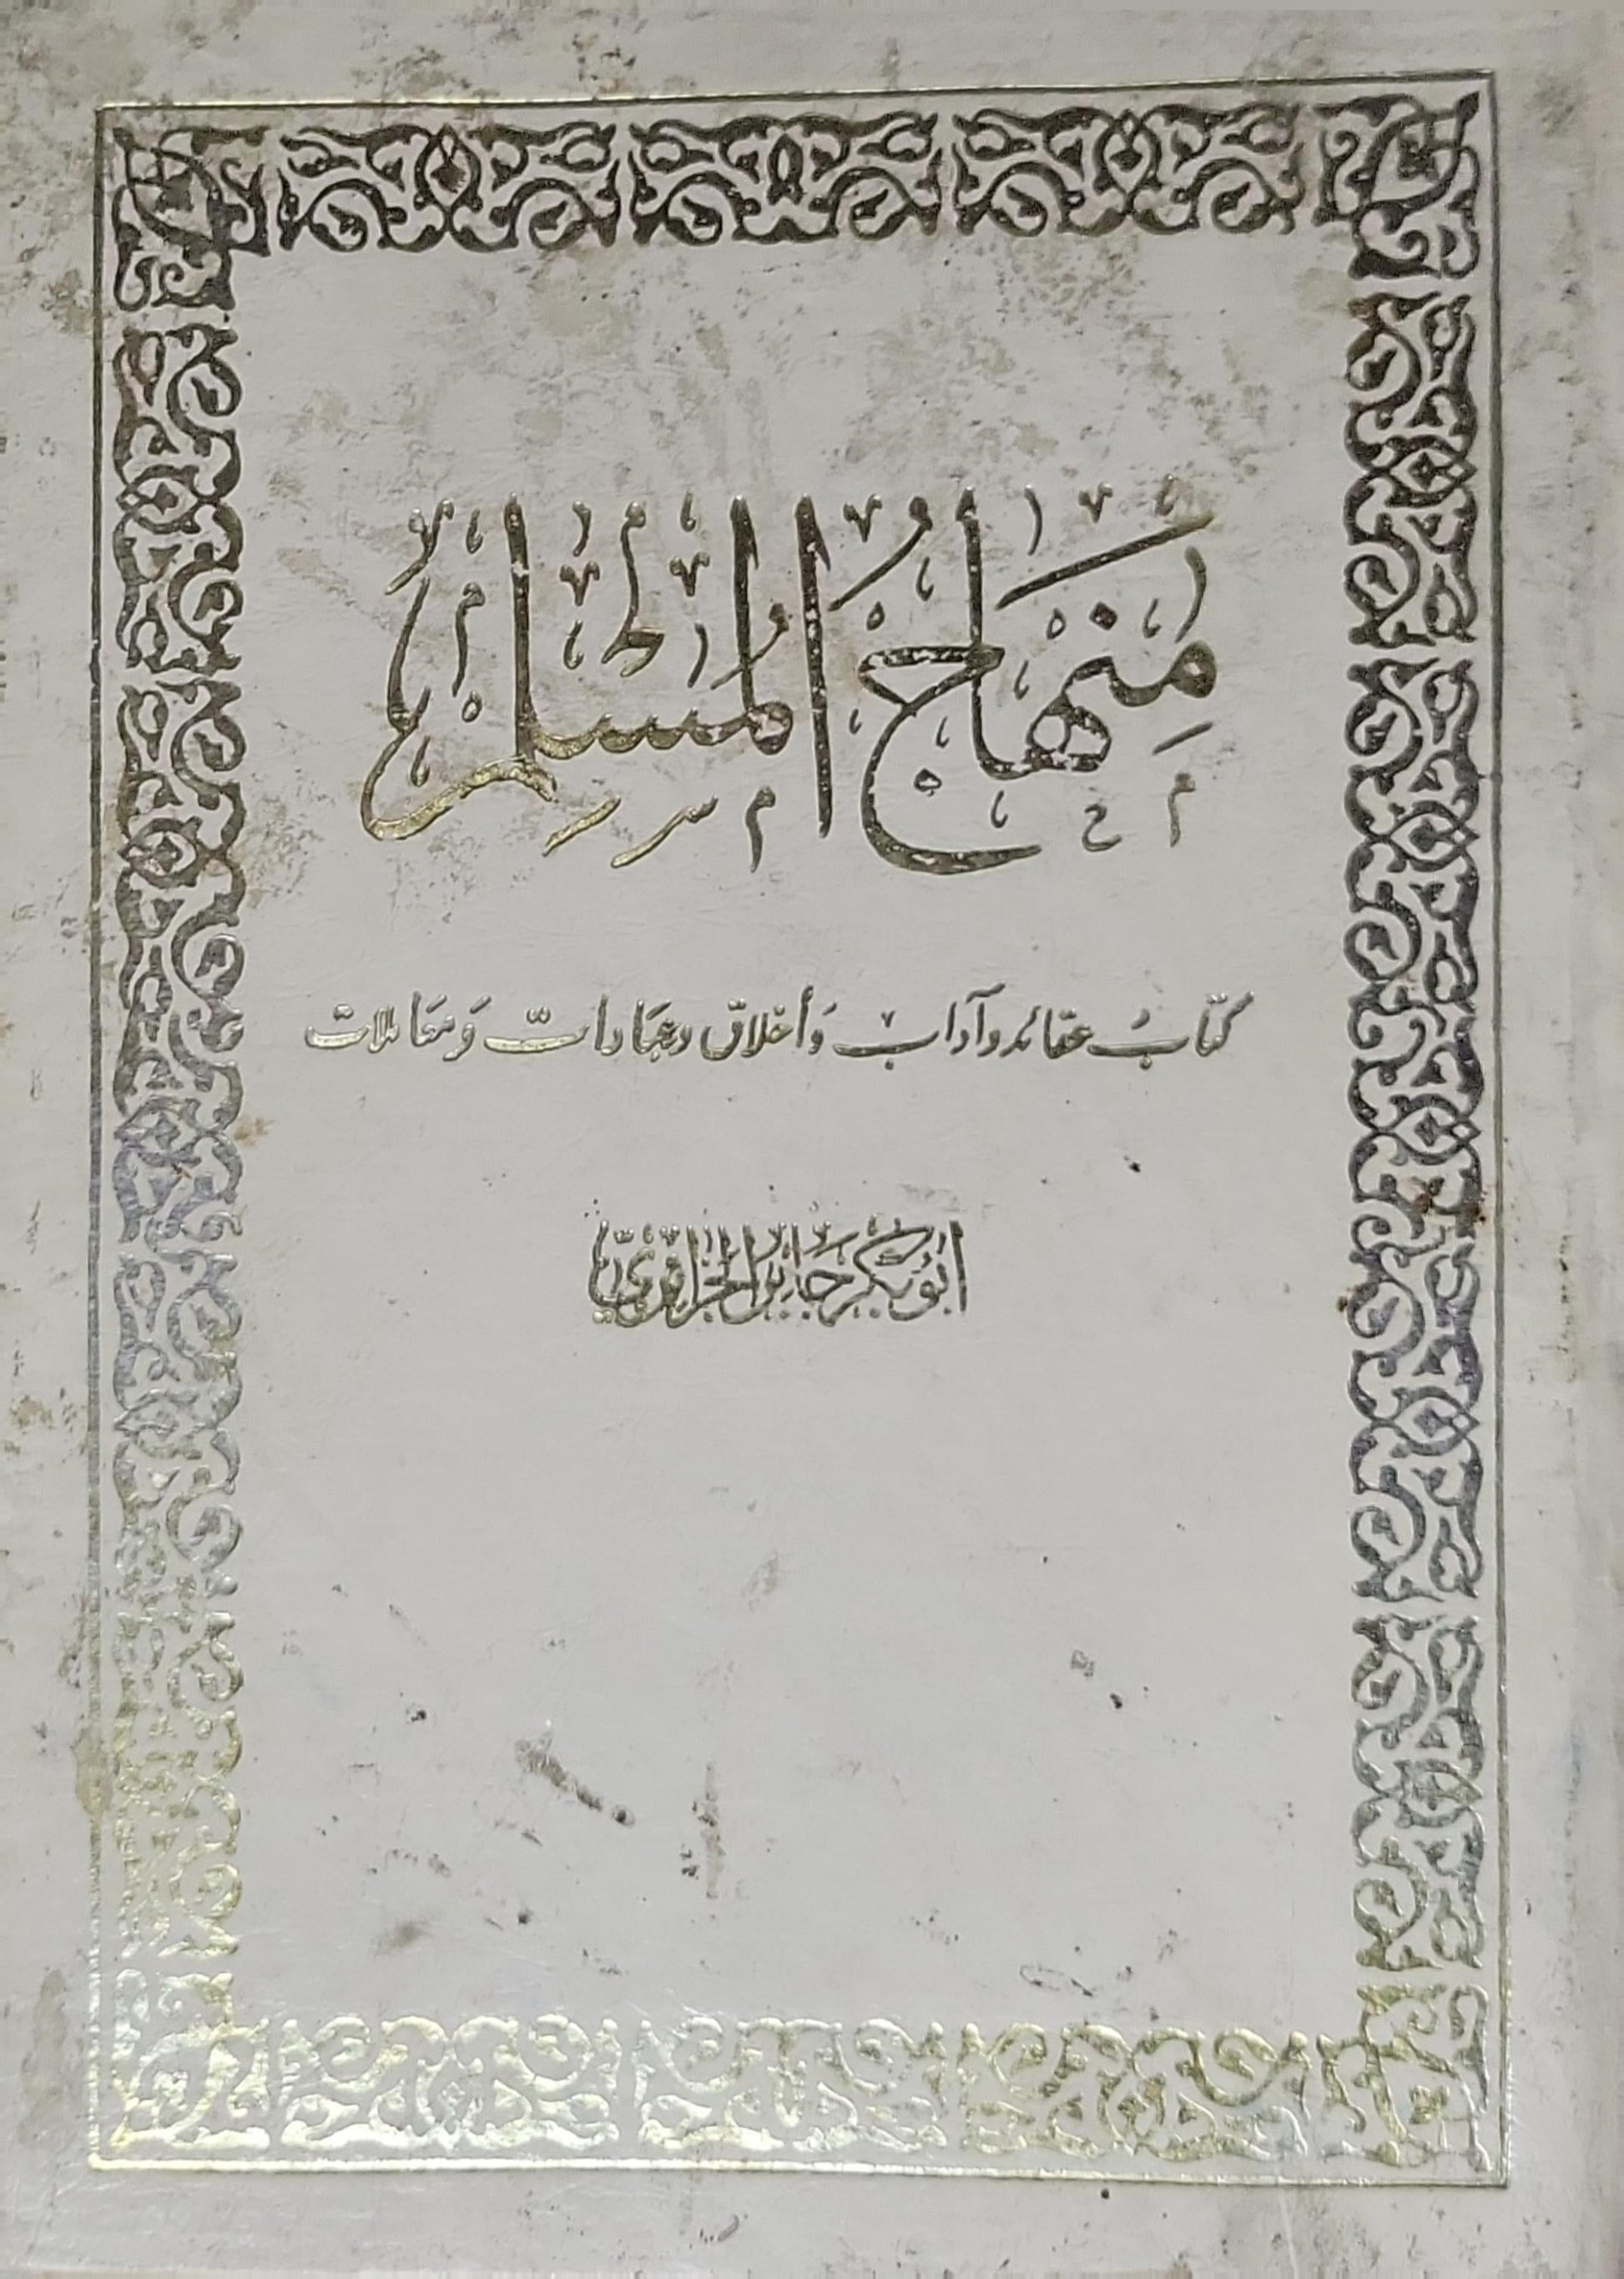 مِنْهَاجُ المُسْلِمِ
كتابُ عقائد وآداب وَأخلاق وعبَادات وَمعَاملات
أبُو بَكر جَابر الجَزائِريّ